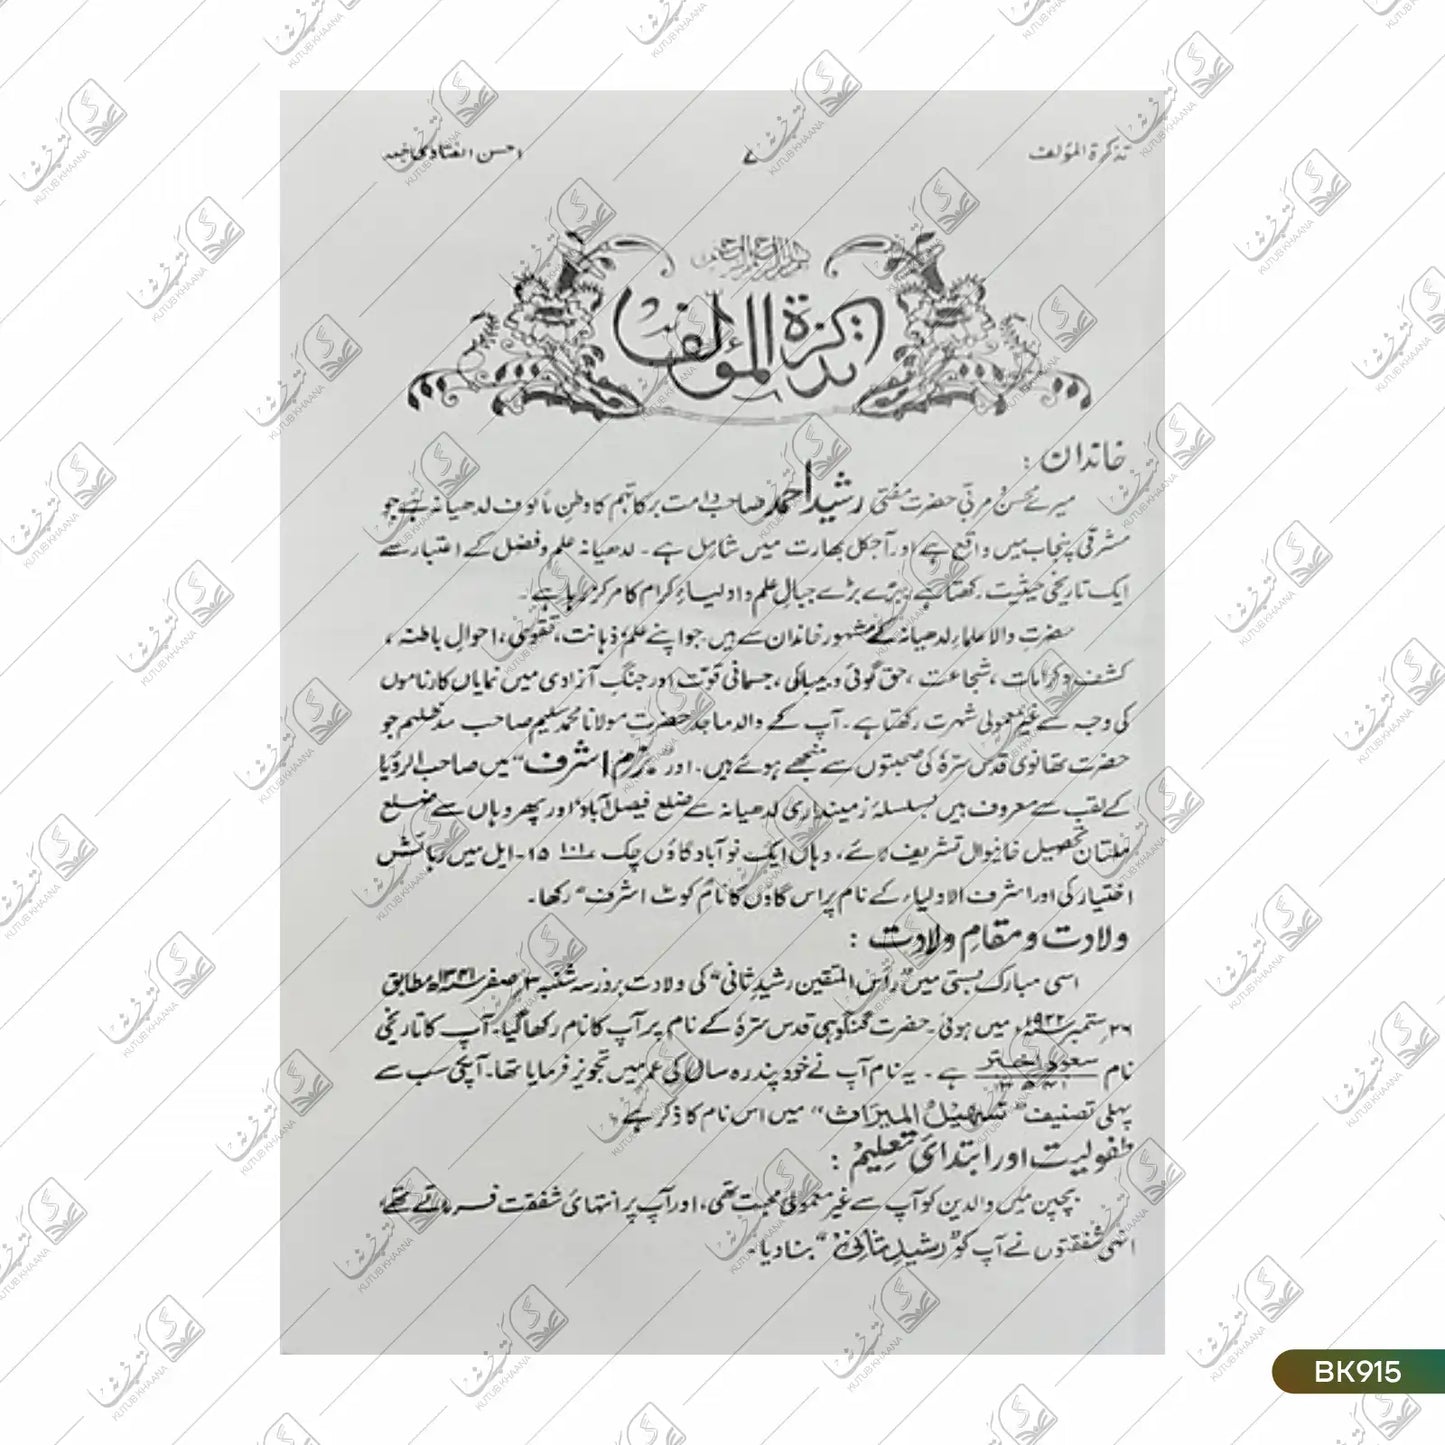 تذکرة المؤلف
احسن الفتاوی
بسم اللہ الرحمن الرحیم
تذکرة المؤلف
خاندان :
میرے محسن و مربّی حضرت مفتی رشید احمد صاحب دامت برکاتہم کا وطنِ مألوف لدھیانہ ہے جو
مشرقی پنجاب میں واقع ہے اور آجکل بھارت میں شامل ہے ۔ لدھیانہ علم و فضل کے اعتبار سے
ایک تاریخی حیثیت رکھتا ہے بڑے بڑے جبالِ علم و اولیاءِ کرام کا مرکز رہا ہے ۔
حضرتِ والا علماءِ لدھیانہ کے مشہور خاندان سے ہیں جو اپنے علم و ذہانت، تقوی، احوالِ باطنہ ،
کشف و کرامات ، شجاعت ، حق گوئی و بیباکی ، جسمانی قوّت اور جنگِ آزادی میں نمایاں کارناموں
کی وجہ سے غیر معمولی شہرت رکھتا ہے ۔ آپ کے والد ماجد حضرت مولانا محمد سلیم صاحب مدظلہم جو
حضرت تھانوی قدس سرّہ کی صحبتوں سے منجھے ہوئے ہیں ۔ اور "بزم اشرف" میں صاحب الرؤیا
کے لقب سے معروف ہیں بسلسلۂ زمینداری لدھیانہ سے ضلع فیصل آباد اور پھر وہاں سے ضلع
ملتان تحصیل خانیوال تشریف لائے ، وہاں ایک نو آباد گاؤں چک ۱۰۱ ۱۵۔ایل میں رہائش
اختیار کی اور اشرف الاولیاء کے نام پر اس گاؤں کا نام "کوٹ اشرف" رکھا ۔
ولادت و مقامِ ولادت :
اسی مبارک بستی میں "رأس المتقین رشیدِ ثانی" کی ولادت بروز سہ شنبہ ۳ صفر سنہ ۱۳۴۱ھ مطابق
۲۶ ستمبر سنہ ۱۹۲۲ء میں ہوئی ۔ حضرت گنگوہی قدس سرّہٗ کے نام پر آپ کا نام رکھا گیا ۔ آپ کا تاریخی
نام سعود اختر ۱۳۴۱ ہے ۔ یہ نام آپ نے خود پندرہ سال کی عمر میں تجویز فرمایا تھا ۔ آپکی سب سے
پہلی تصنیف "تسہیل المیراث" میں اس نام کا ذکر ہے
طفولیت اور ابتدائی تعلیم :
بچپن میں والدین کو آپ سے غیر معمولی محبت تھی ، اور آپ پر انتہائی شفقت فرماتے تھے ،
انہی شفقتوں نے آپ کو "رشیدِ ثانی" بنا دیا ۔
BK915